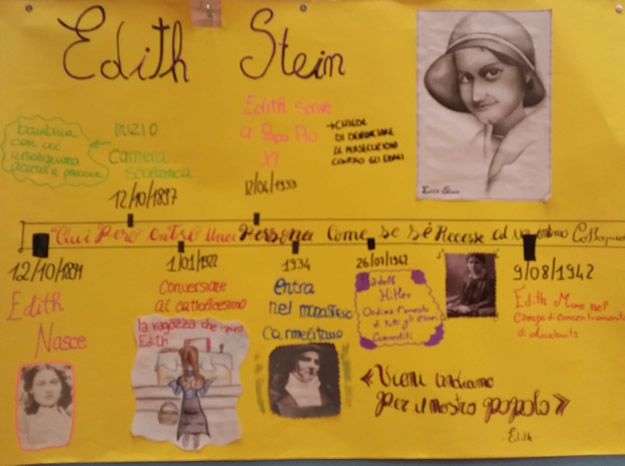 Edith Stein
Edith scrive
a Papa Pio
XI
→ CHIEDE
DI DENUNCIARE
LE PERSECUZIONI
CONTRO GLI EBREI
INIZIO
Carriera
scolastica
Bambina
con un'
intelligenza
precoce
12/10/1897
12/04/1933
Edith Stein
Qui Però entrò Una Persona Come se si Recasse ad un
12/10/1891
Edith
Nasce
1/01/1922
Conversione
al cattolicesimo
la ragazza che
Edith
1934
Entra
nel monastero
Carmelitano
26/07/1942
Adolf
Hitler
Ordina l'arresto
di tutti gli Ebrei
Convertiti
9/08/1942
Edith Muore nel
Campo di Concentramento
di Auschwitz
«Vieni andiamo
per il nostro popolo»
- Edith